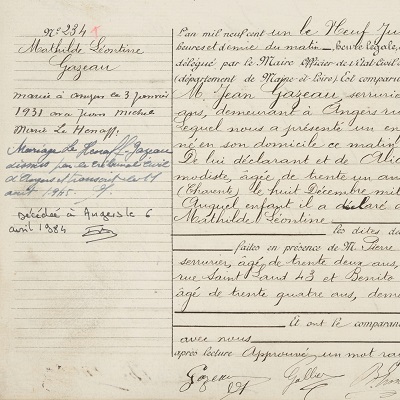 N° 234
Mathilde Léontine
Gazeau
mariée à Angers le 3 janvier
1931 à Jean Michel
Marie Le Henaff.
Mariage Le Henaff Gazeau
dissous par le tribunal Civil
d'Angers et transcrit le 18
août 1945.
Décédée à Angers le 6
avril 1984
L'an mil neuf cent un le Neuf Jui
heures et demie du matin — heure légale,
délégué par le Maire Officier de l'Etat-Civil d
(département de Maine-et-Loire) Est compar
M. Jean Gazeau serrurier
ans, demeurant à Angers ru
Lequel nous a présenté un en
né en son domicile ce matin
De lui déclarant et de Alic
modiste, âgée de trente un an
(Charente) le huit Décembre mil
Auquel enfant il a déclaré d
Mathilde Léontine
les dites dé
faites en présence de M. Pierre
serrurier, âgé de trente deux ans,
rue Saint Laud 43 et Benito
âgé de trente quatre ans, deme
Et ont le comparan
avec nous
après lecture Approuvé un mot ra
Gazeau Gallier